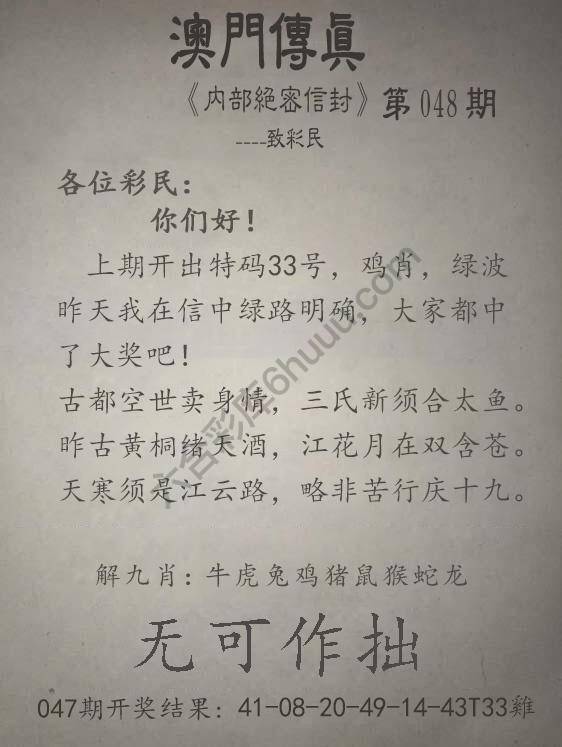 澳門傳眞
《内部絕密信封》第048期
----致彩民
各位彩民：
你们好！
上期开出特码33号，鸡肖，绿波
昨天我在信中绿路明确，大家都中
了大奖吧！
古都空世卖身情，三氏新须合太鱼。
昨古黄桐绪天酒，江花月在双含苍。
天寒须是江云路，略非苦行庆十九。
解九肖：牛虎兔鸡猪鼠猴蛇龙
无可作拙
047期开奖结果：41-08-20-49-14-43T33雞
六合彩库6huuu.com